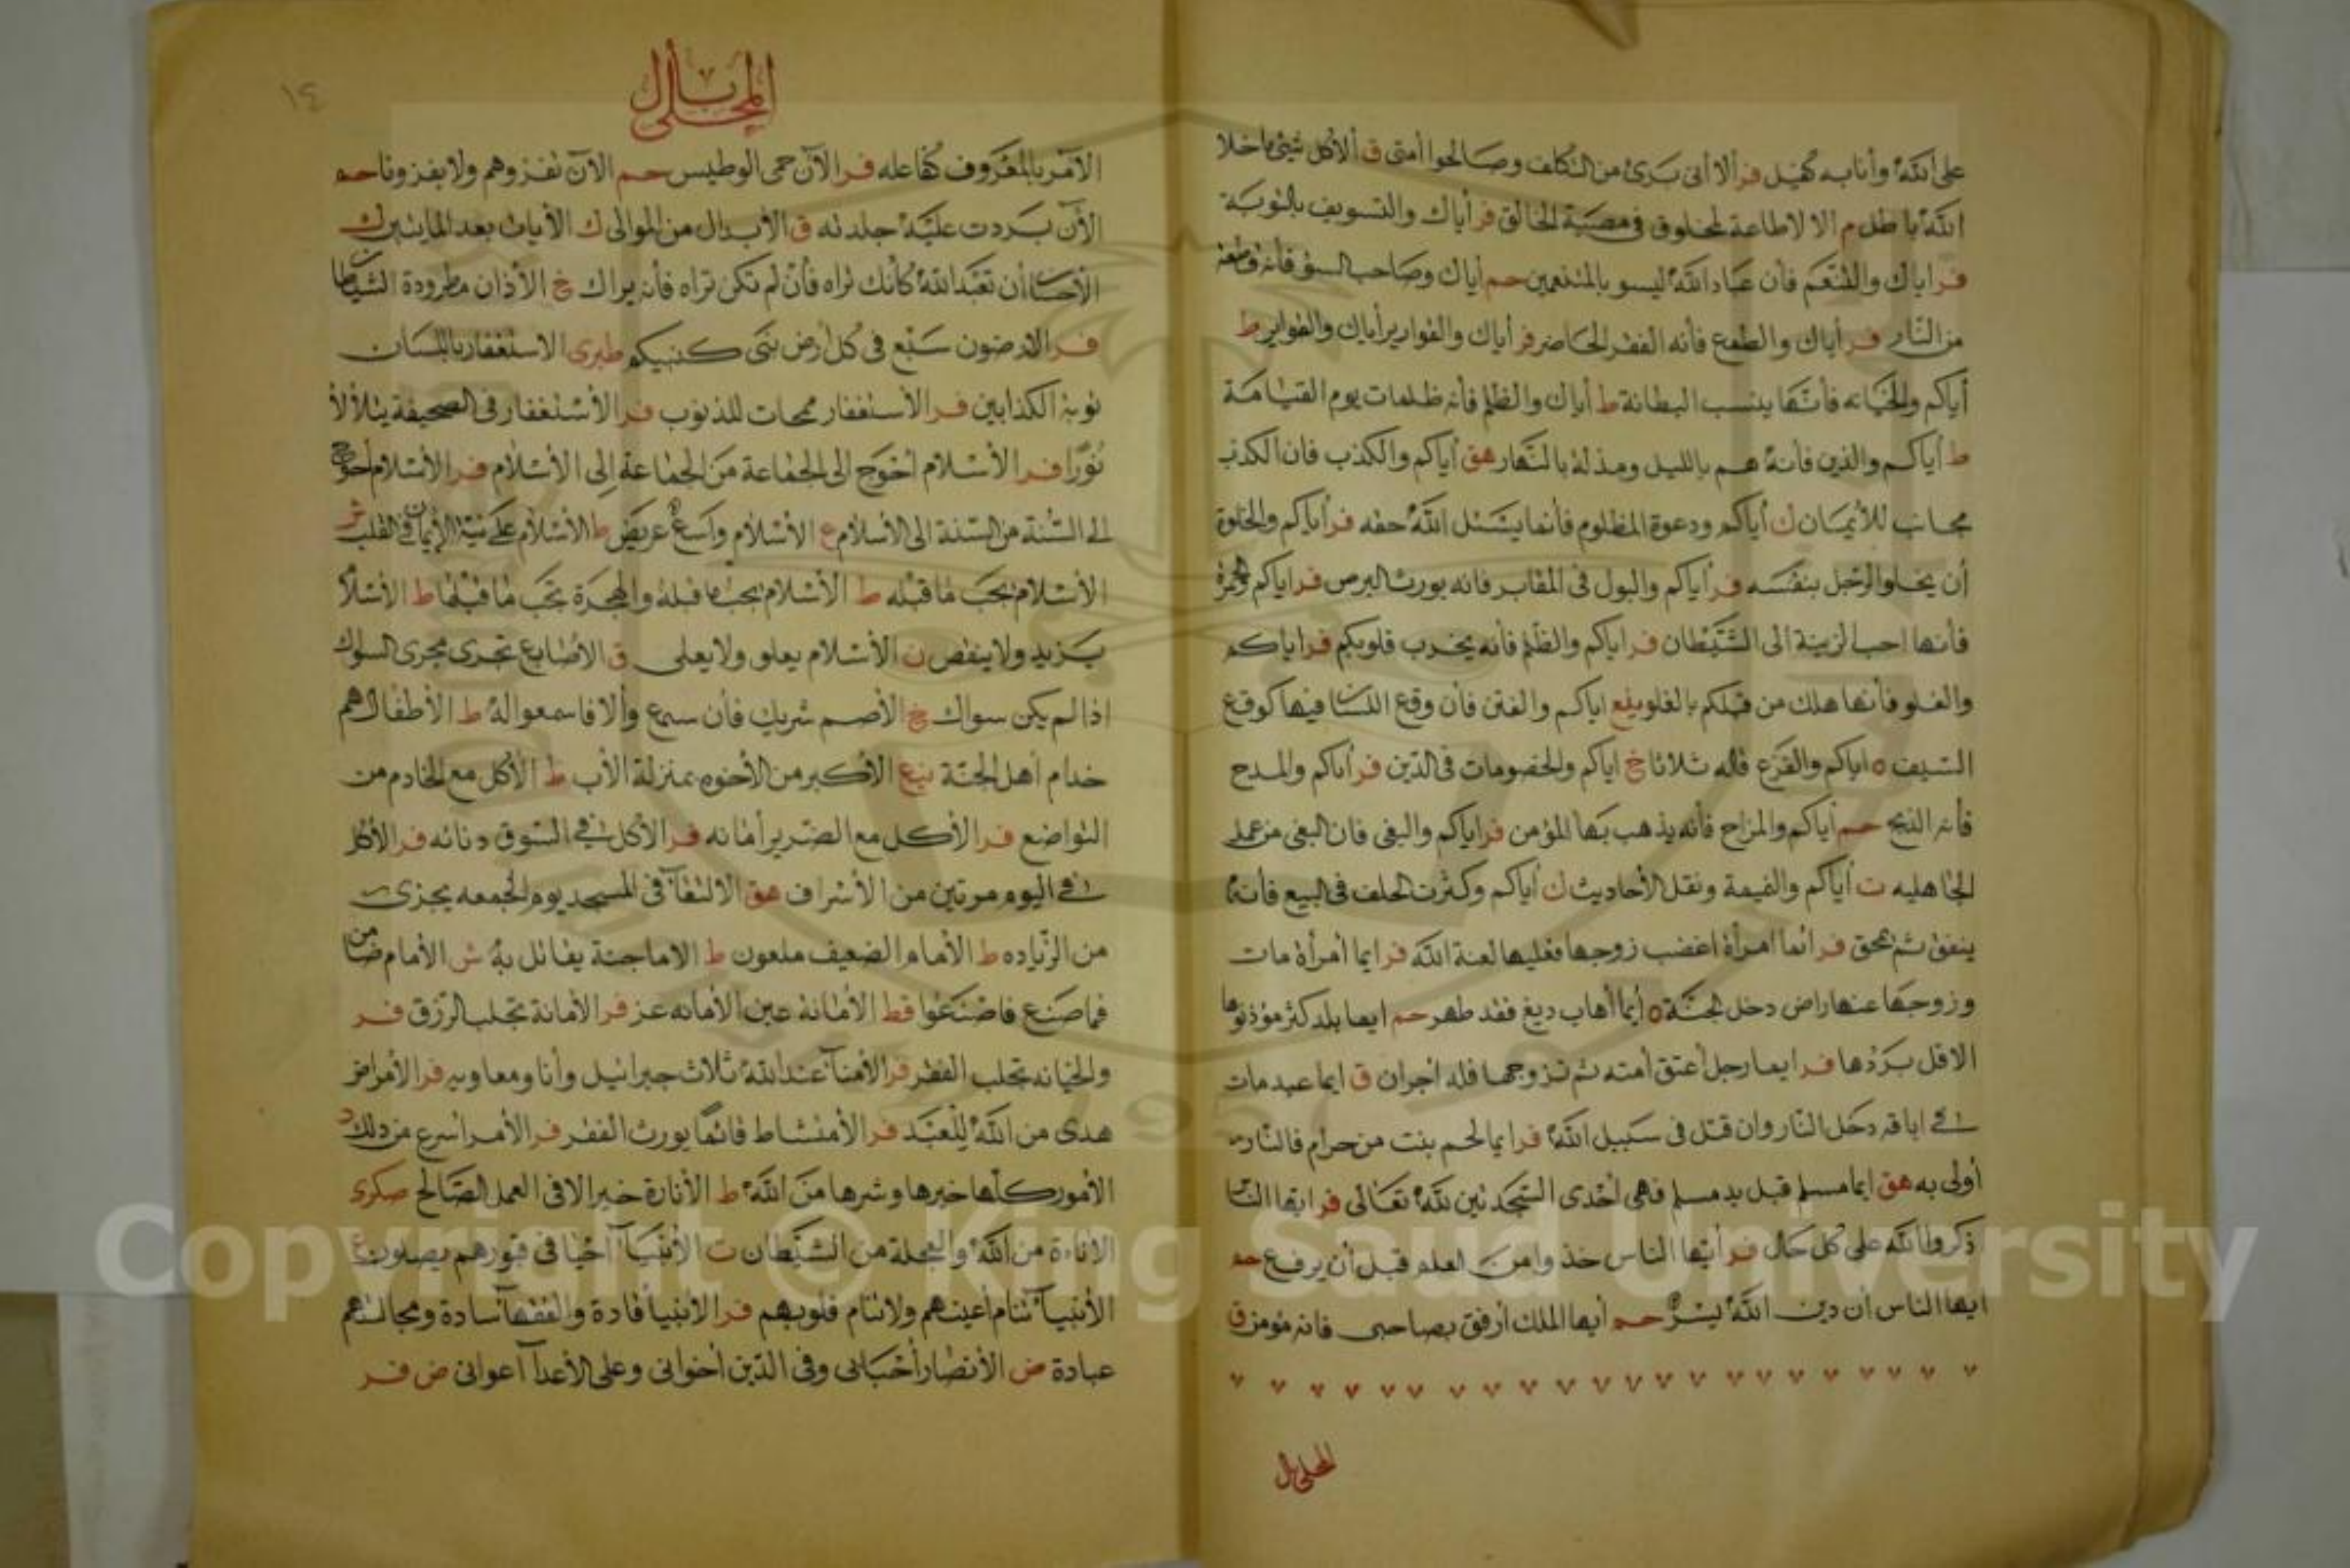 على الله وأنا به كفيل فر ألا أنى برئ من التكلف وصالحوا أمتى ق ألا كل شيئ ماخلا
الله باطل م الا لاطاعة لمخلوق فى معصية الخالق فر أياك والتسويف بالتوبة
فر اياك والتنعم فأن عباد الله ليسو بالمتنعمين حم أياك وصاحب السؤ فأنه قطعة
من النار فر أياك والطمع فأنه الفقر الحاضر فر أياك والقوارير أياك والقوارير ط
أياكم والخيانه فأنها بئست البطانة ط أياك والظلم فأنه ظلمات يوم القيامة
ط أياكم والدين فأنه هم بالليل ومذلة بالنهار هق أياكم والكذب فان الكذب
مجانب للأيمان ك أياكم ودعوة المظلوم فأنما يسئل الله حقه فر أياكم والخلوة
أن يخلو الرجل بنفسه فر أياكم والبول فى المقابر فانه يورث البرص فر اياكم والحمرة
فأنها احب الزينة الى الشيطان فر اياكم والظلم فأنه يخرب قلوبكم فر اياكم
والغلو فأنها هلك من قبلكم بالغلو يلع اياكم والفتن فأن وقع اللسان فيها كوقع
السيف ه اياكم والقزع قاله ثلاثا خ اياكم والخصومات فى الدين فر أياكم والمدح
فأنه الذبح حم أياكم والمزاح فأنه يذهب بها المؤمن فر اياكم والبغى فان البغى من عمل
الجاهليه ت أياكم والنميمة ونقل الأحاديث ك أياكم وكثرت الحلف فى البيع فأنه
ينفق ثم يمحق فر ائما امرأة اغضب زوجها فعليها لعنة الله فر ايما أمرأة مات
وزوجها عنها راض دخل الجنة ه أيما أهاب دبغ فقد طهر حم ايما بلد كثر مؤذنوها
الا قل بردها فر ايما رجل أعتق أمته ثم تزوجها فله اجران ق ايما عبد مات
فى اباقه دخل النار وان قتل فى سبيل الله فر ايما لحم نبت من حرام فالنار
أولى به هق ايما مسلم قبل يد مسلم فهى أحدى السجدتين لله تعالى فر ايها النا
ذكروا الله على كل حال فر أيها الناس خذوا من العلم قبل أن يرفع حم
ايها الناس أن دين الله يسر حم أيها الملك أرفق بصاحبى فانه مؤمن ق
المحلى بال
١٤
المحلى بال
الآمر بالمعروف كفاعله فر الآن حمى الوطيس حم الآن نغزوهم ولا يغزونا حم
الآن بردت عليه جلدته ق الأبدال من الموالى ك الأيات بعد المائتين ك
الأحسان أن تعبد الله كأنك تراه فأن لم تكن تراه فأنه يراك خ الأذان مطرودة الشيطان
فر الارضون سبع فى كل أرض نبى كنبيكم طبرى الاستغفار باللسان
توبة الكذابين فر الأستغفار ممحات للذنوب فر الأستغفار فى الصحيفة يتلألأ
نورا فر الأسلام أحوج الى الجماعة من الجماعة إلى الأسلام فر الأسلام أحوج
الى السنة من السنة الى الأسلام ع الأسلام واسع عريض ط الأسلام علانية الإيمان فى القلب
الأسلام يجب ما قبله ط الأسلام يجب ما قبله والهجرة تجب ما قبلها ط الأسلام
يزيد ولا ينقص ن الأسلام يعلو ولا يعلى ق الأصابع تجرى مجرى السواك
اذا لم يكن سواك خ الأصم شريك فأن سمع وألا فاسمعوا له ط الأطفال هم
خدام أهل الجنة نبع الأكبر من الأخوه بمنزلة الأب ط الأكل مع الخادم من
التواضع فر الأكل مع الضرير أمانه فر الأكل فى السوق دنائه فر الأكل
فى اليوم مرتين من الأسراف هق الالتقاء فى المسجد يوم الجمعه يجزى
من الزياده ط الأمام الضعيف ملعون ط الامام جنة يقاتل به ش الأمام ضامن
فما صنع فاصنعوا قط الأمانة عين الأمانه عز فر الأمانة تجلب الرزق فر
والخيانه تجلب الفقر فر الأمناء عند الله ثلاث جبرائيل وأنا ومعاويه فر الأمراض
هدى من الله للعبد فر الأمتشاط قائما يورث الفقر فر الأمر اسرع من ذلك د
الأمور كلها خيرها وشرها من الله ط الأنارة خير الا فى العمل الصالح
الاناءة من الله والعجلة من الشيطان ت الأنبياء أحيا فى قبورهم يصلون ع
الأنبياء تنام أعينهم ولاتنام قلوبهم فر الأنبيا قادة والفقهاء سادة ومجالستهم
عبادة ض الأنصار أحبابى وفى الدين أخوانى وعلى الأعداء أعوانى ض فر